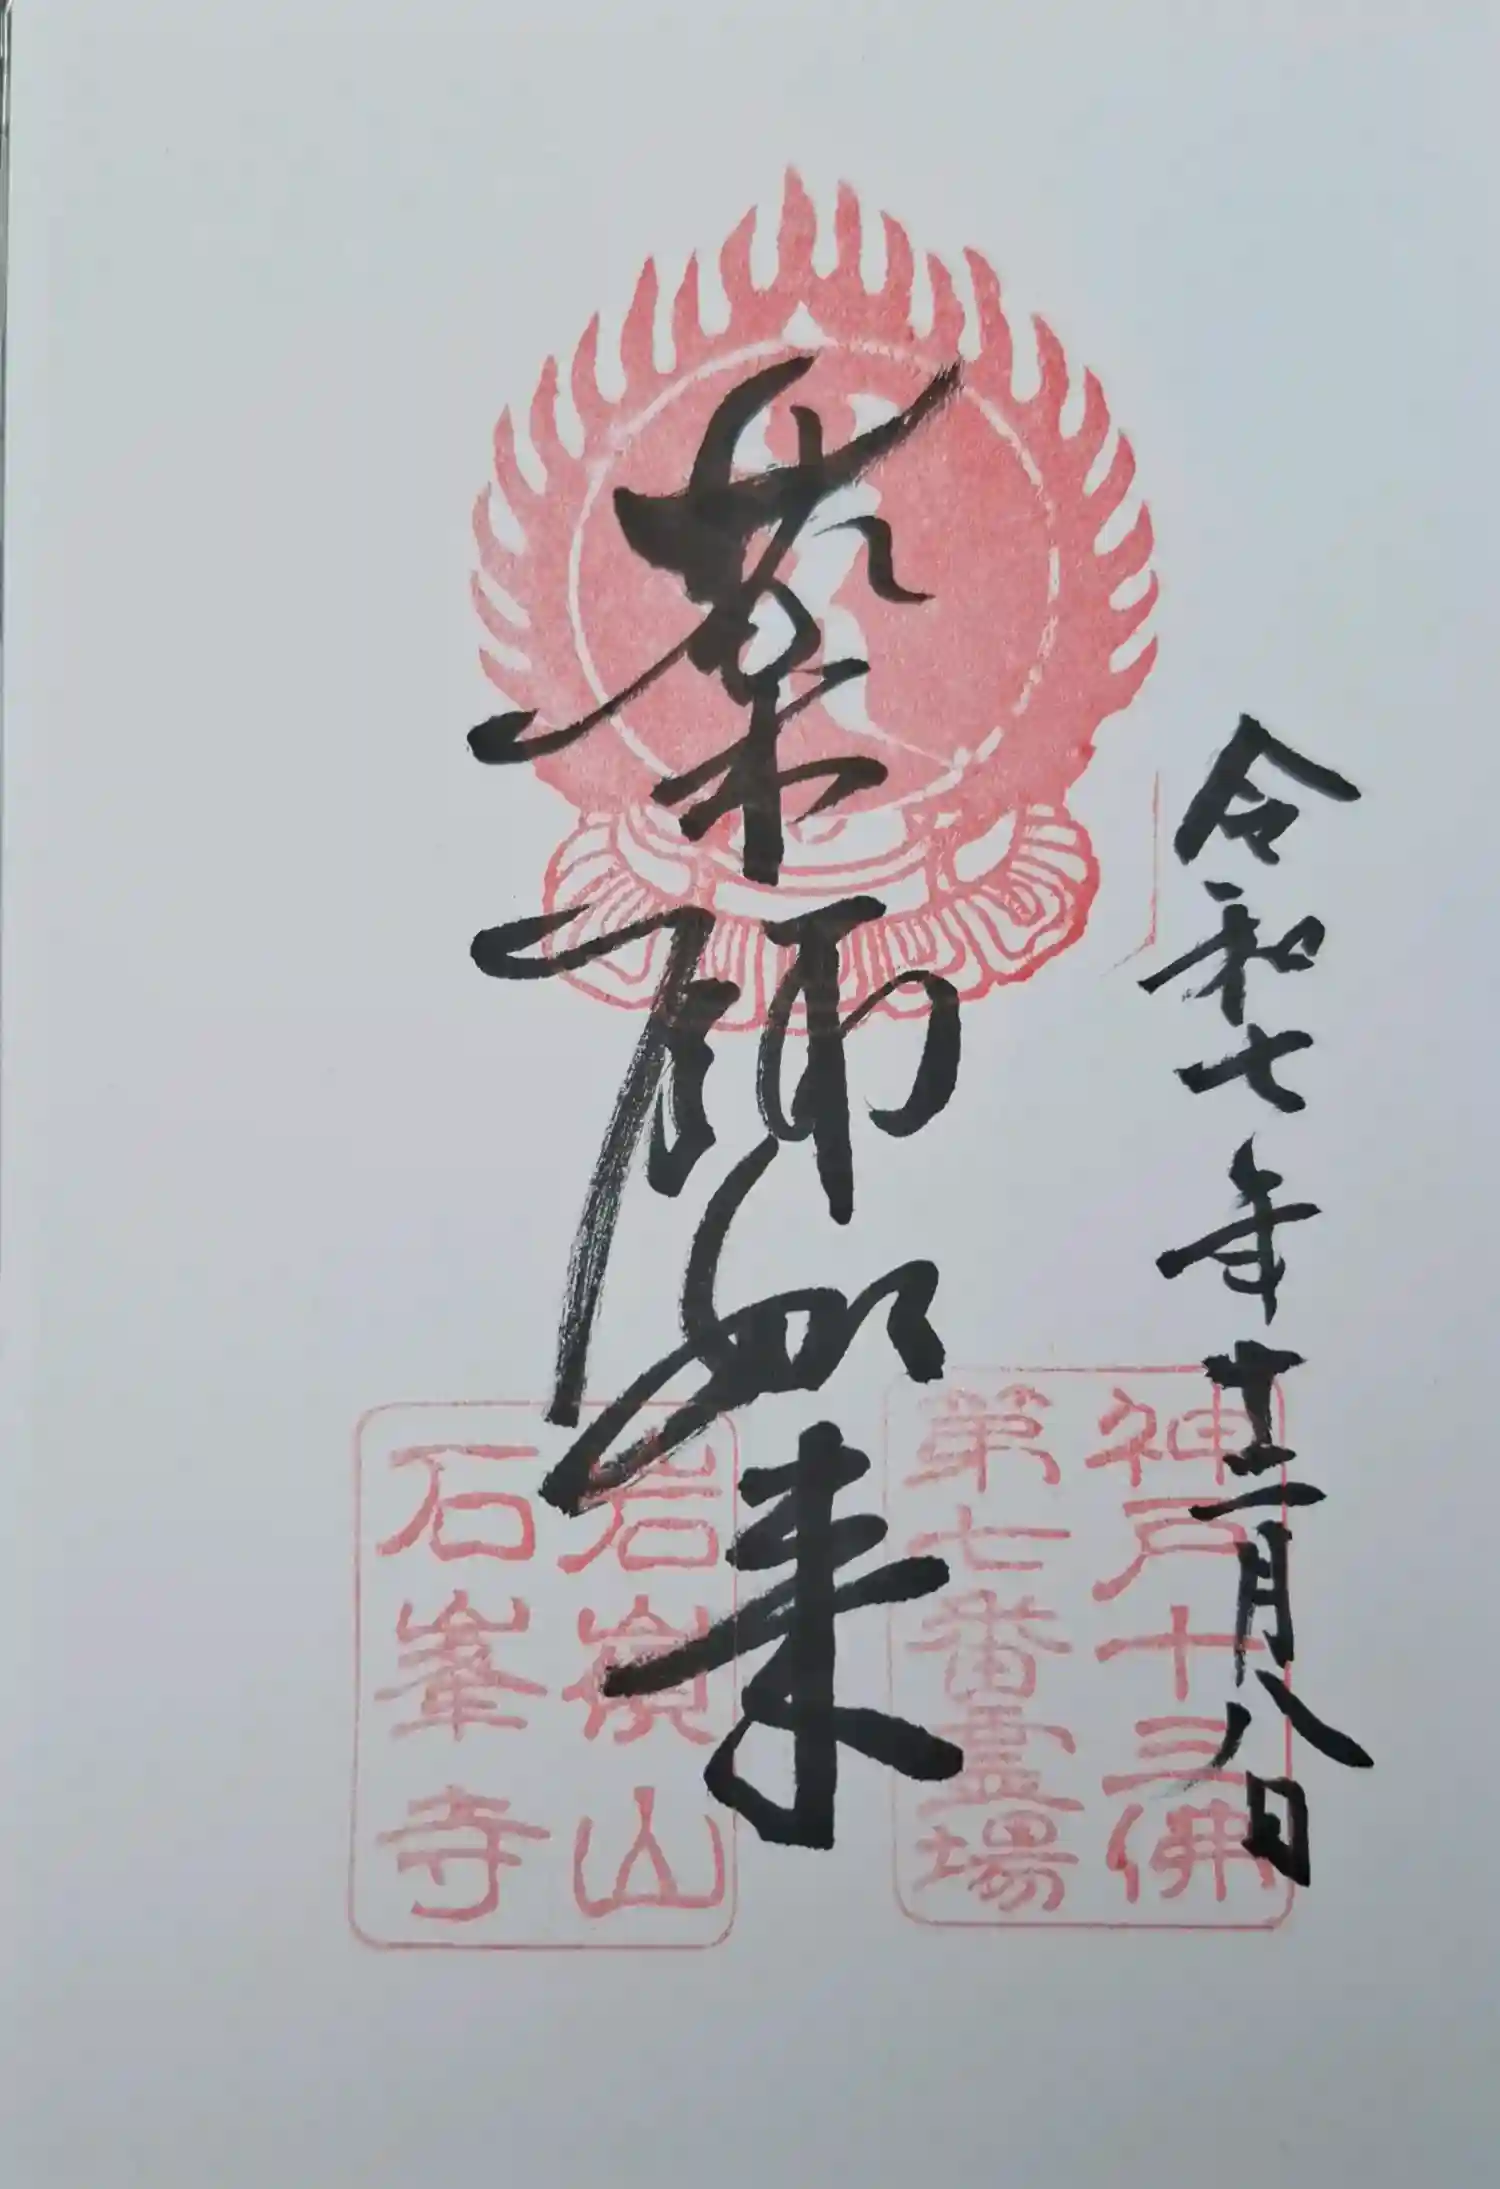 令和七年十二月八日
薬師如来
神戸十三佛
第七番霊場
岩嶺山
石峯寺